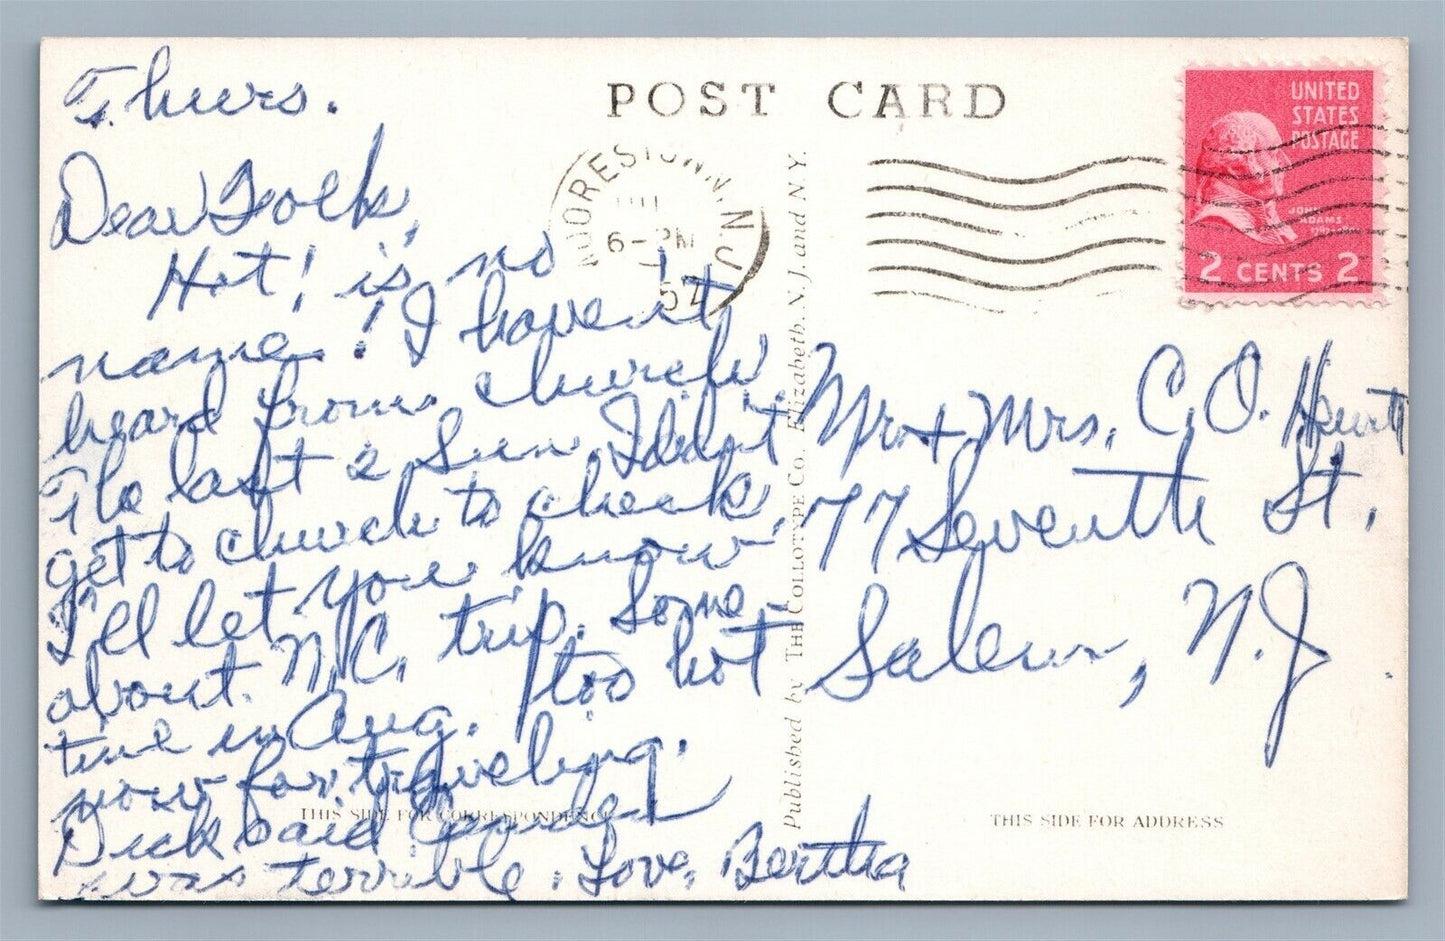 Thurs.
Dear Folks,
Hot! is no
name! I haven't
heard from church
The last 2 Sun. I didn't
get to church to check,
I'll let you know
about N.C. trip. Some
time in Aug. too hot
now for traveling.
Dick said
was terrible. Love, Bertha
THIS SIDE FOR CORRESPONDENCE
POST CARD
MOORESTOWN, N.J.
6-PM
52
UNITED
STATES
POSTAGE
JOHN
ADAMS
2 CENTS 2
Published by THE COLLOTYPE CO. Elizabeth, N.J. and N.Y.
Mr. + Mrs. C. O. Hewitt
77 Seventh St.
Salem, N.J.
THIS SIDE FOR ADDRESS